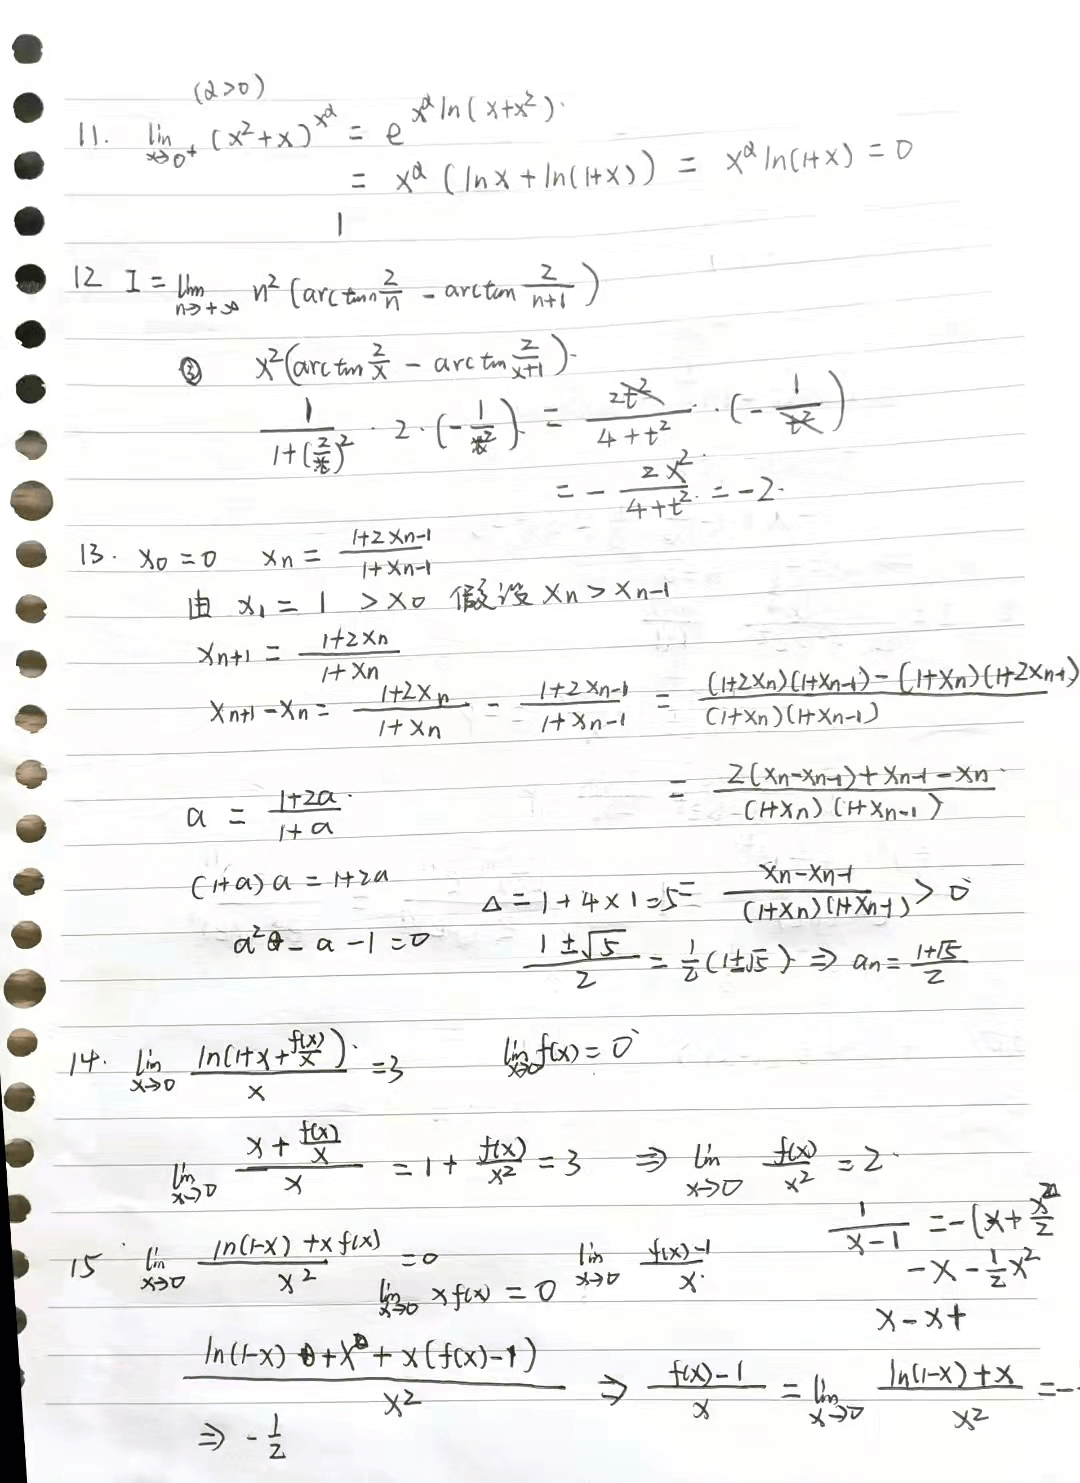 (α>0)
11. lim x→0⁺ (x²+x)^(x^α) = e^(x^α ln(x+x²)).
= x^α (lnx + ln(1+x)) = x^α ln(1+x) = 0
1
12 I = lim n→+∞ n² (arctan 2/n - arctan 2/(n+1))
③ x²(arctan 2/x - arctan 2/(x+1)).
1/(1+(2/x)²) · 2 · (-1/x²) = 2t²/(4+t²) · (-1/t²)
= - 2x²/(4+t²) = -2.
13. x₀ = 0 xn = (1+2xn-1)/(1+xn-1)
由 x₁ = 1 > x₀ 假设 xn > xn-1
xn+1 = (1+2xn)/(1+xn)
xn+1 - xn = (1+2xn)/(1+xn) - (1+2xn-1)/(1+xn-1) = ((1+2xn)(1+xn-1) - (1+xn)(1+2xn-1))/((1+xn)(1+xn-1))
a = (1+2a)/(1+a) = (2(xn-xn-1)+xn-1-xn)/((1+xn)(1+xn-1))
(1+a)a = 1+2a Δ = 1+4×1=5 = (xn-xn-1)/((1+xn)(1+xn-1)) > 0
a² - a - 1 = 0 (1±√5)/2 = 1/2(1±√5) ⇒ an = (1+√5)/2
14. lim x→0 ln(1+x+f(x)/x)/x = 3 lim x→0 f(x) = 0
lim x→0 (x+f(x)/x)/x = 1 + f(x)/x² = 3 ⇒ lim x→0 f(x)/x² = 2.
1/(x-1) = -(x+x²/2
15 lim x→0 (ln(1-x)+xf(x))/x² = 0 lim x→0 (f(x)-1)/x. -x - 1/2x²
lim x→0 xf(x) = 0
x-x+
(ln(1-x)+x+x(f(x)-1))/x² ⇒ (f(x)-1)/x = lim x→0 (ln(1-x)+x)/x² = -
⇒ -1/2